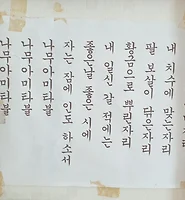 내 치수에 맞은자리
팔 보살이 닦은자리
황금으로 뿌린자리
내 일신 갈 적에는
좋은날 좋은 시에
자는 잠에 인도 하소서
나무아미타불
나무아미타불
나무아미타불